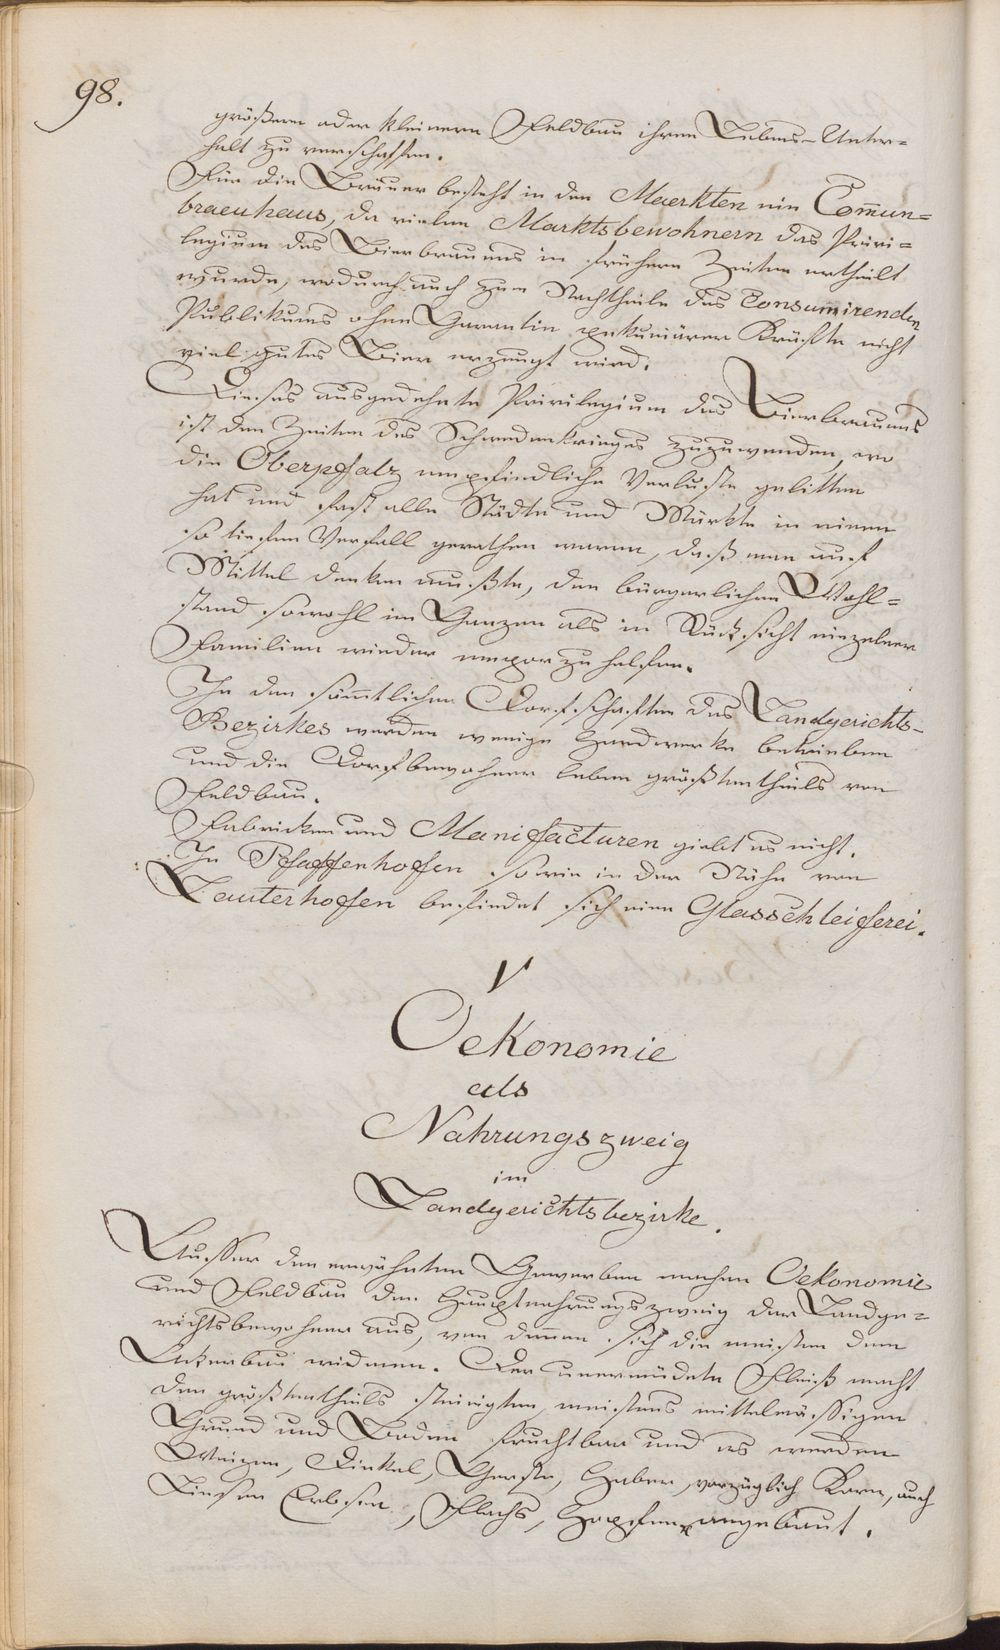 98.
größern oder kleinern Feldbau ihren Lebens-Unter=
halt zu verschaffen.
Für die Bräuer besteht in den Maerkten ein Com̄un=
braeuhaus, da vielen Marktsbewohnern das Privi=
legium des Bierbrauens in frühern Zeiten ertheilt
wurde, wodurch auch zum Nachtheile des Consumirenden
Publikums ohne Garantie pekuniärer Kräfte nicht
viel gutes Bier erzeugt wird.
Dieses ausgedehnte Privilegium des Bierbrauens
ist den Zeiten des Schwedenkrieges zuzuwenden, wo
die Oberpfalz empfindliche Verluste gelitten
hat und fast alle Städte und Märkte in einen
so tiefen Verfall gerathen waren, daß man auf
Mittel denken mußte, den bürgerlichen Wohl=
stand sowohl im Ganzen als in Rücksicht einzelner
Familien wieder empor zu helfen.
In den sämtlichen Dorfschaften des Landgerichts-
Bezirkes werden wenige Handwerke betrieben
und die Dorfbewohner leben größtentheils von
Feldbau.
Fabricken und Manifacturen giebt es nicht.
In Pfaffenhoffen sowie in der Nähe von
Lauterhoffen befindet sich eine Glasschleiferei.
V
Oekonomie
als
Nahrungszweig
im
Landgerichtsbezirke.
Ausser den erwähnten Gewerben machen Oekonomie
und Feldbau den Hauptnahrungszweig der Landge=
richtsbewohner aus, von denen sich die meisten dem
Ackerbau widmen. Der unermüdete Fleiß macht
den größtentheils steinigten meistens mittelmässigen
Grund und Boden fruchtbar und es werden
Weizen, Dinkel, Gerste, Haber, vorzüglich Korn, auch
Linsen Erbsen, Flachs, Hopfen angebaut.